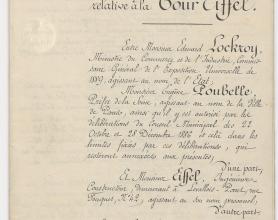 relative à la Tour Eiffel.
Entre Monsieur Edouard Lockroy,
Ministre du Commerce et de l'Industrie, Commis-
saire Général de l'Exposition Universelle de
1889, agissant au nom de l'Etat;
Monsieur Eugène Poubelle,
Préfet de la Seine, agissant au nom de la Ville
de Paris, ainsi qu'il y est autorisé par les
délibérations du Conseil Municipal des 22
Octobre et 28 Décembre 1886 et cela dans les
limites fixées par ces délibérations, qui
resteront annexées aux présentes;
D'une part,
Et Monsieur Eiffel, Ingénieur
Constructeur, demeurant à Levallois-Perret, rue
Fouquet, N° 42, agissant en son nom personnel;
D'autre part.